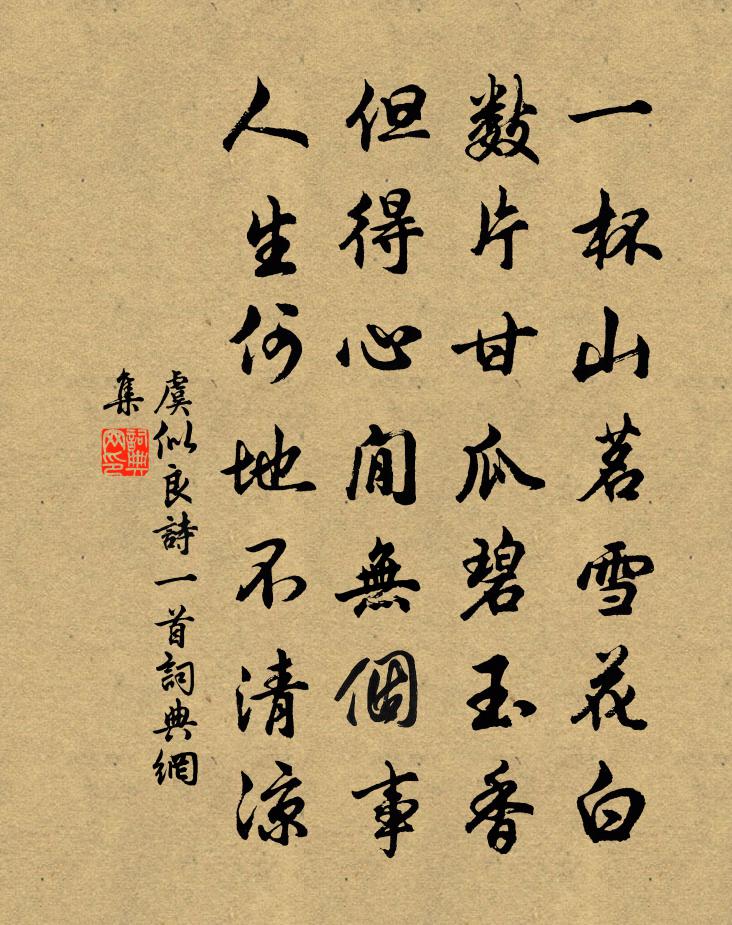 一杯山茗雪花白
數片甘瓜碧玉香
但得心閒無個事
人生何地不清涼
虞似良詩一首詞典網
集
詞典网印